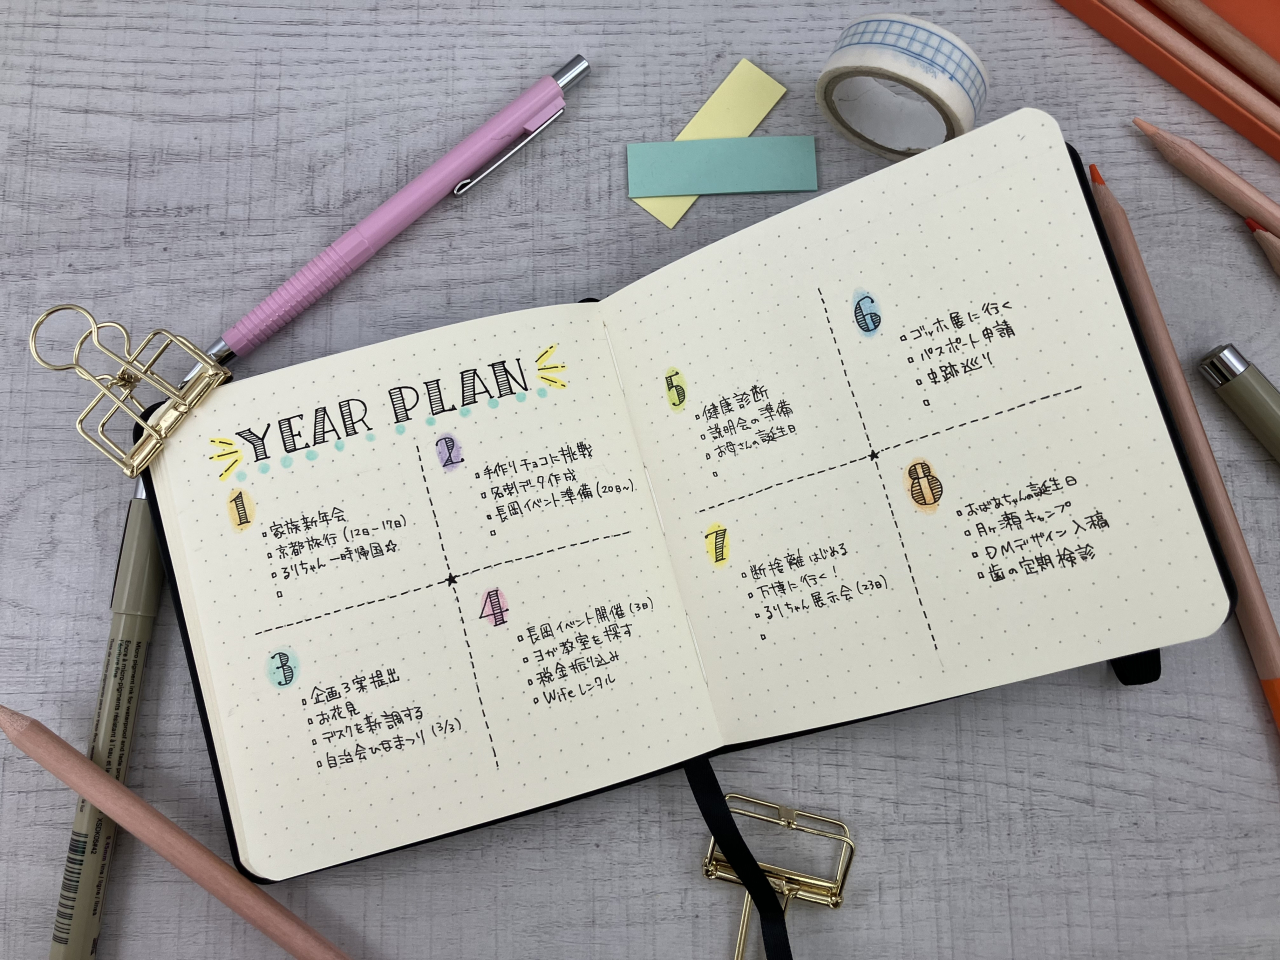 YEAR PLAN
1
家族新年会
京都旅行 (12日-17日)
るりちゃん一時帰国☆
2
手作りチョコに挑戦
名刺データ作成
長岡イベント準備 (20日~)
3
企画3案提出
お花見
デスクを新調する
自治会ひなまつり (3/3)
4
長岡イベント開催 (3日)
ヨガ教室を探す
税金振り込み
Wifeレンタル
5
健康診断
説明会の準備
お母さんの誕生日
6
ゴッホ展に行く
パスポート申請
史跡巡り
7
断捨離はじめる
万博に行く!
るりちゃん展示会 (23日)
8
おばあちゃんの誕生日
月ヶ瀬キャンプ
DMデザイン入稿
歯の定期検診